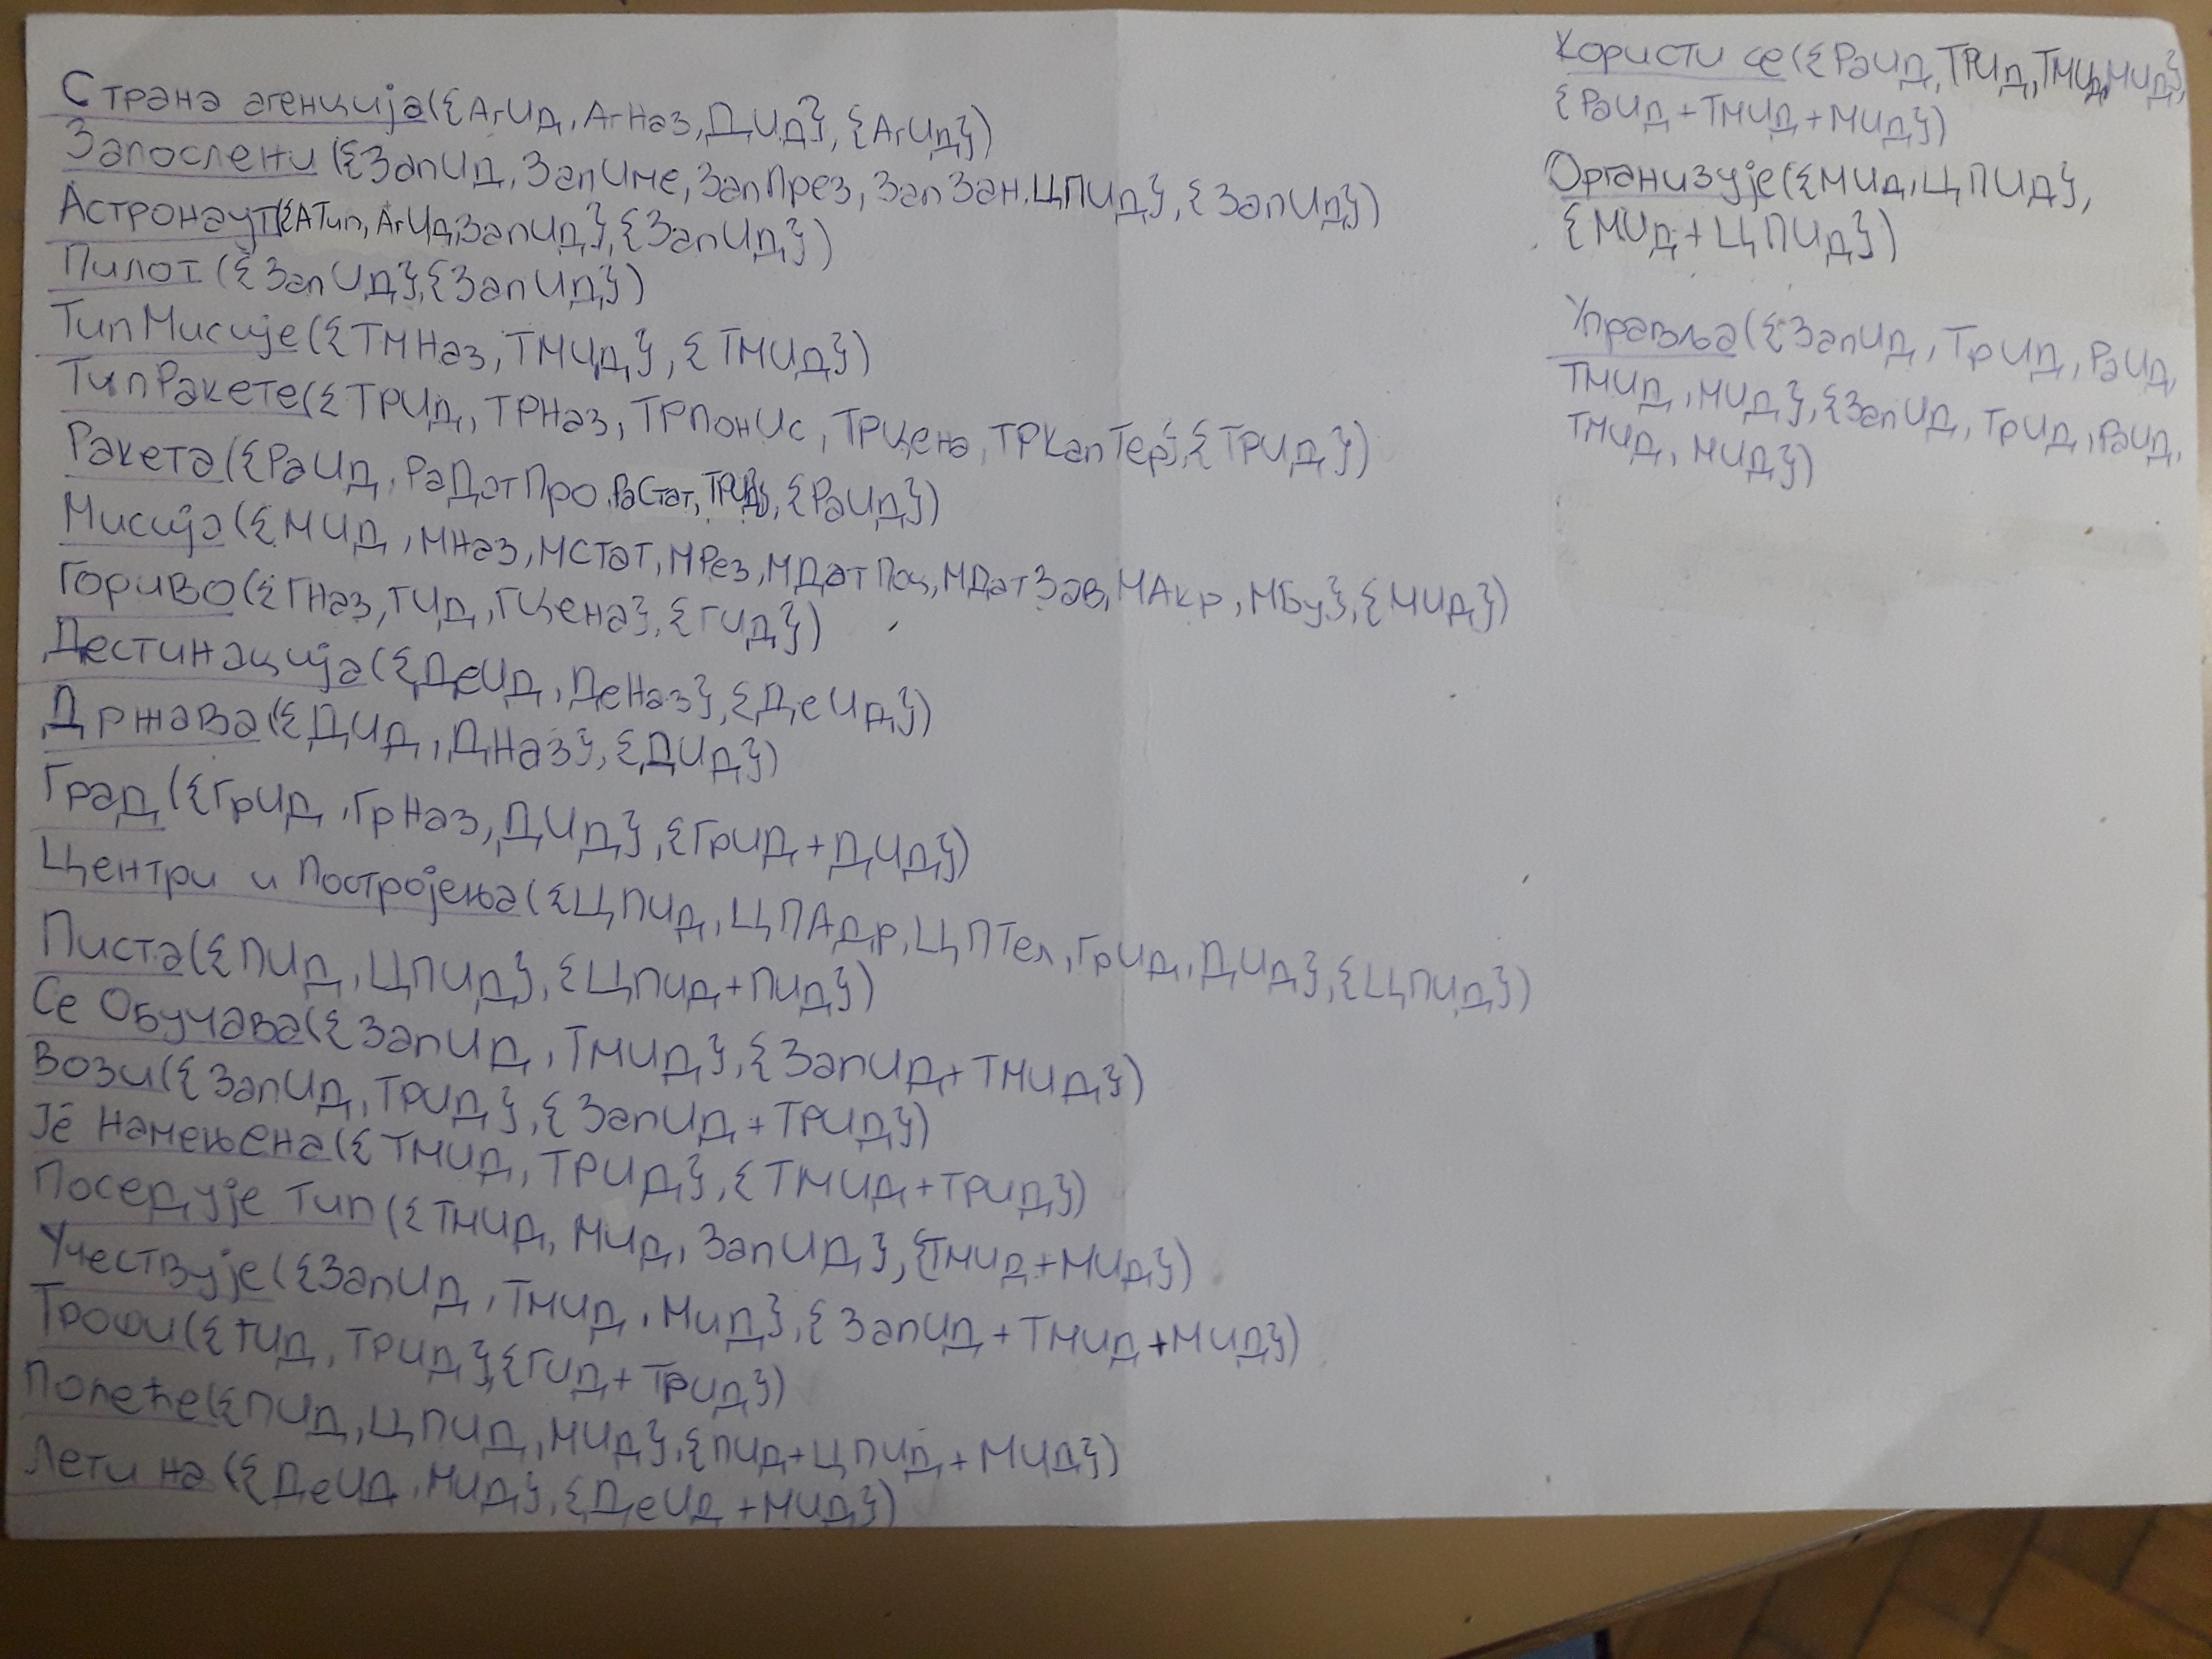 Страна агенција({АгИд, АгНаз, ДИд}, {АгИд})
Запослени ({ЗапИд, ЗапИме, ЗапПрез, ЗапЗан, ЦПИд}, {ЗапИд})
Астронаут({АТип, АгИд, ЗапИд}, {ЗапИд})
Пилот ({ЗапИд}, {ЗапИд})
ТипМисије({ТМНаз, ТМИд}, {ТМИд})
ТипРакете({ТРИд, ТРНаз, ТРПонИс, ТРЦена, ТРКапТер}, {ТРИд})
Ракета({РаИд, РаДатПро, РаСтат, ТРИд}, {РаИд})
Мисија({МИд, МНаз, МСтат, МРез, МДатПоч, МДатЗав, МАкр, МБу}, {МИд})
Гориво({ГНаз, ГИд, ГЦена}, {ГИд})
Дестинација({ДеИд, ДеНаз}, {ДеИд})
Држава({ДИд, ДНаз}, {ДИд})
Град({ГрИд, ГрНаз, ДИд}, {ГрИд+ДИд})
Центри и Постројења({ЦПИд, ЦПАдр, ЦПТел, ГрИд, ДИд}, {ЦПИд})
Писта({ПИд, ЦПИд}, {ЦПИд+ПИд})
Се Обучава({ЗапИд, ТМИд}, {ЗапИд+ТМИд})
Вози({ЗапИд, ТРИд}, {ЗапИд+ТРИд})
Је Намењена({ТМИд, ТРИд}, {ТМИд+ТРИд})
Поседује Тип({ТМИд, МИд, ЗапИд}, {ТМИд+МИд})
Учествује({ЗапИд, ТМИд, МИд}, {ЗапИд+ТМИд+МИд})
Троши({ГИд, ТРИд}, {ГИд+ТРИд})
Полеће({ПИд, ЦПИд, МИд}, {ПИд+ЦПИд+МИд})
Лети на ({ДеИд, МИд}, {ДеИд+МИд})
Користи се({РаИд, ТРИд, ТМИд, МИд},
{РаИд+ТМИд+МИд})
Организује({МИд, ЦПИд},
{МИд+ЦПИд})
Управља({ЗапИд, ТрИд, РаИд,
ТМИд, МИд}, {ЗапИд, ТрИд, РаИд,
ТМИд, МИд})